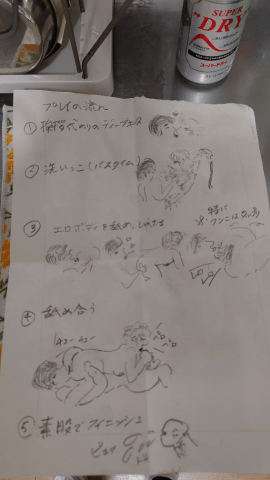 SUPER
"DRY"
スーパードライ
プレイの流れ
① 挨拶代わりのディープキス
② 洗いっこ(バスタイム)
③ エロボディを舐めしゃぶる
特に
ペロペロ
④ 舐め合う
チューチュー
ペロペロ
⑤ 素股でフィニッシュ
ピュッ